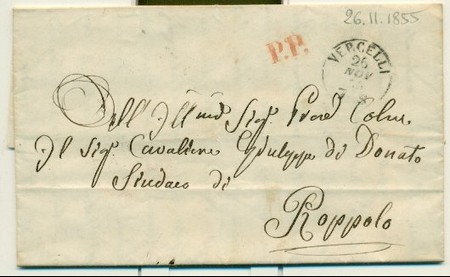 26.11.1855
P.P.
VERCELLI
26
NOV
All' Ill. Sig.
Il Sig. Cavaliere Giuseppe di Donato
Sindaco di
Roppolo